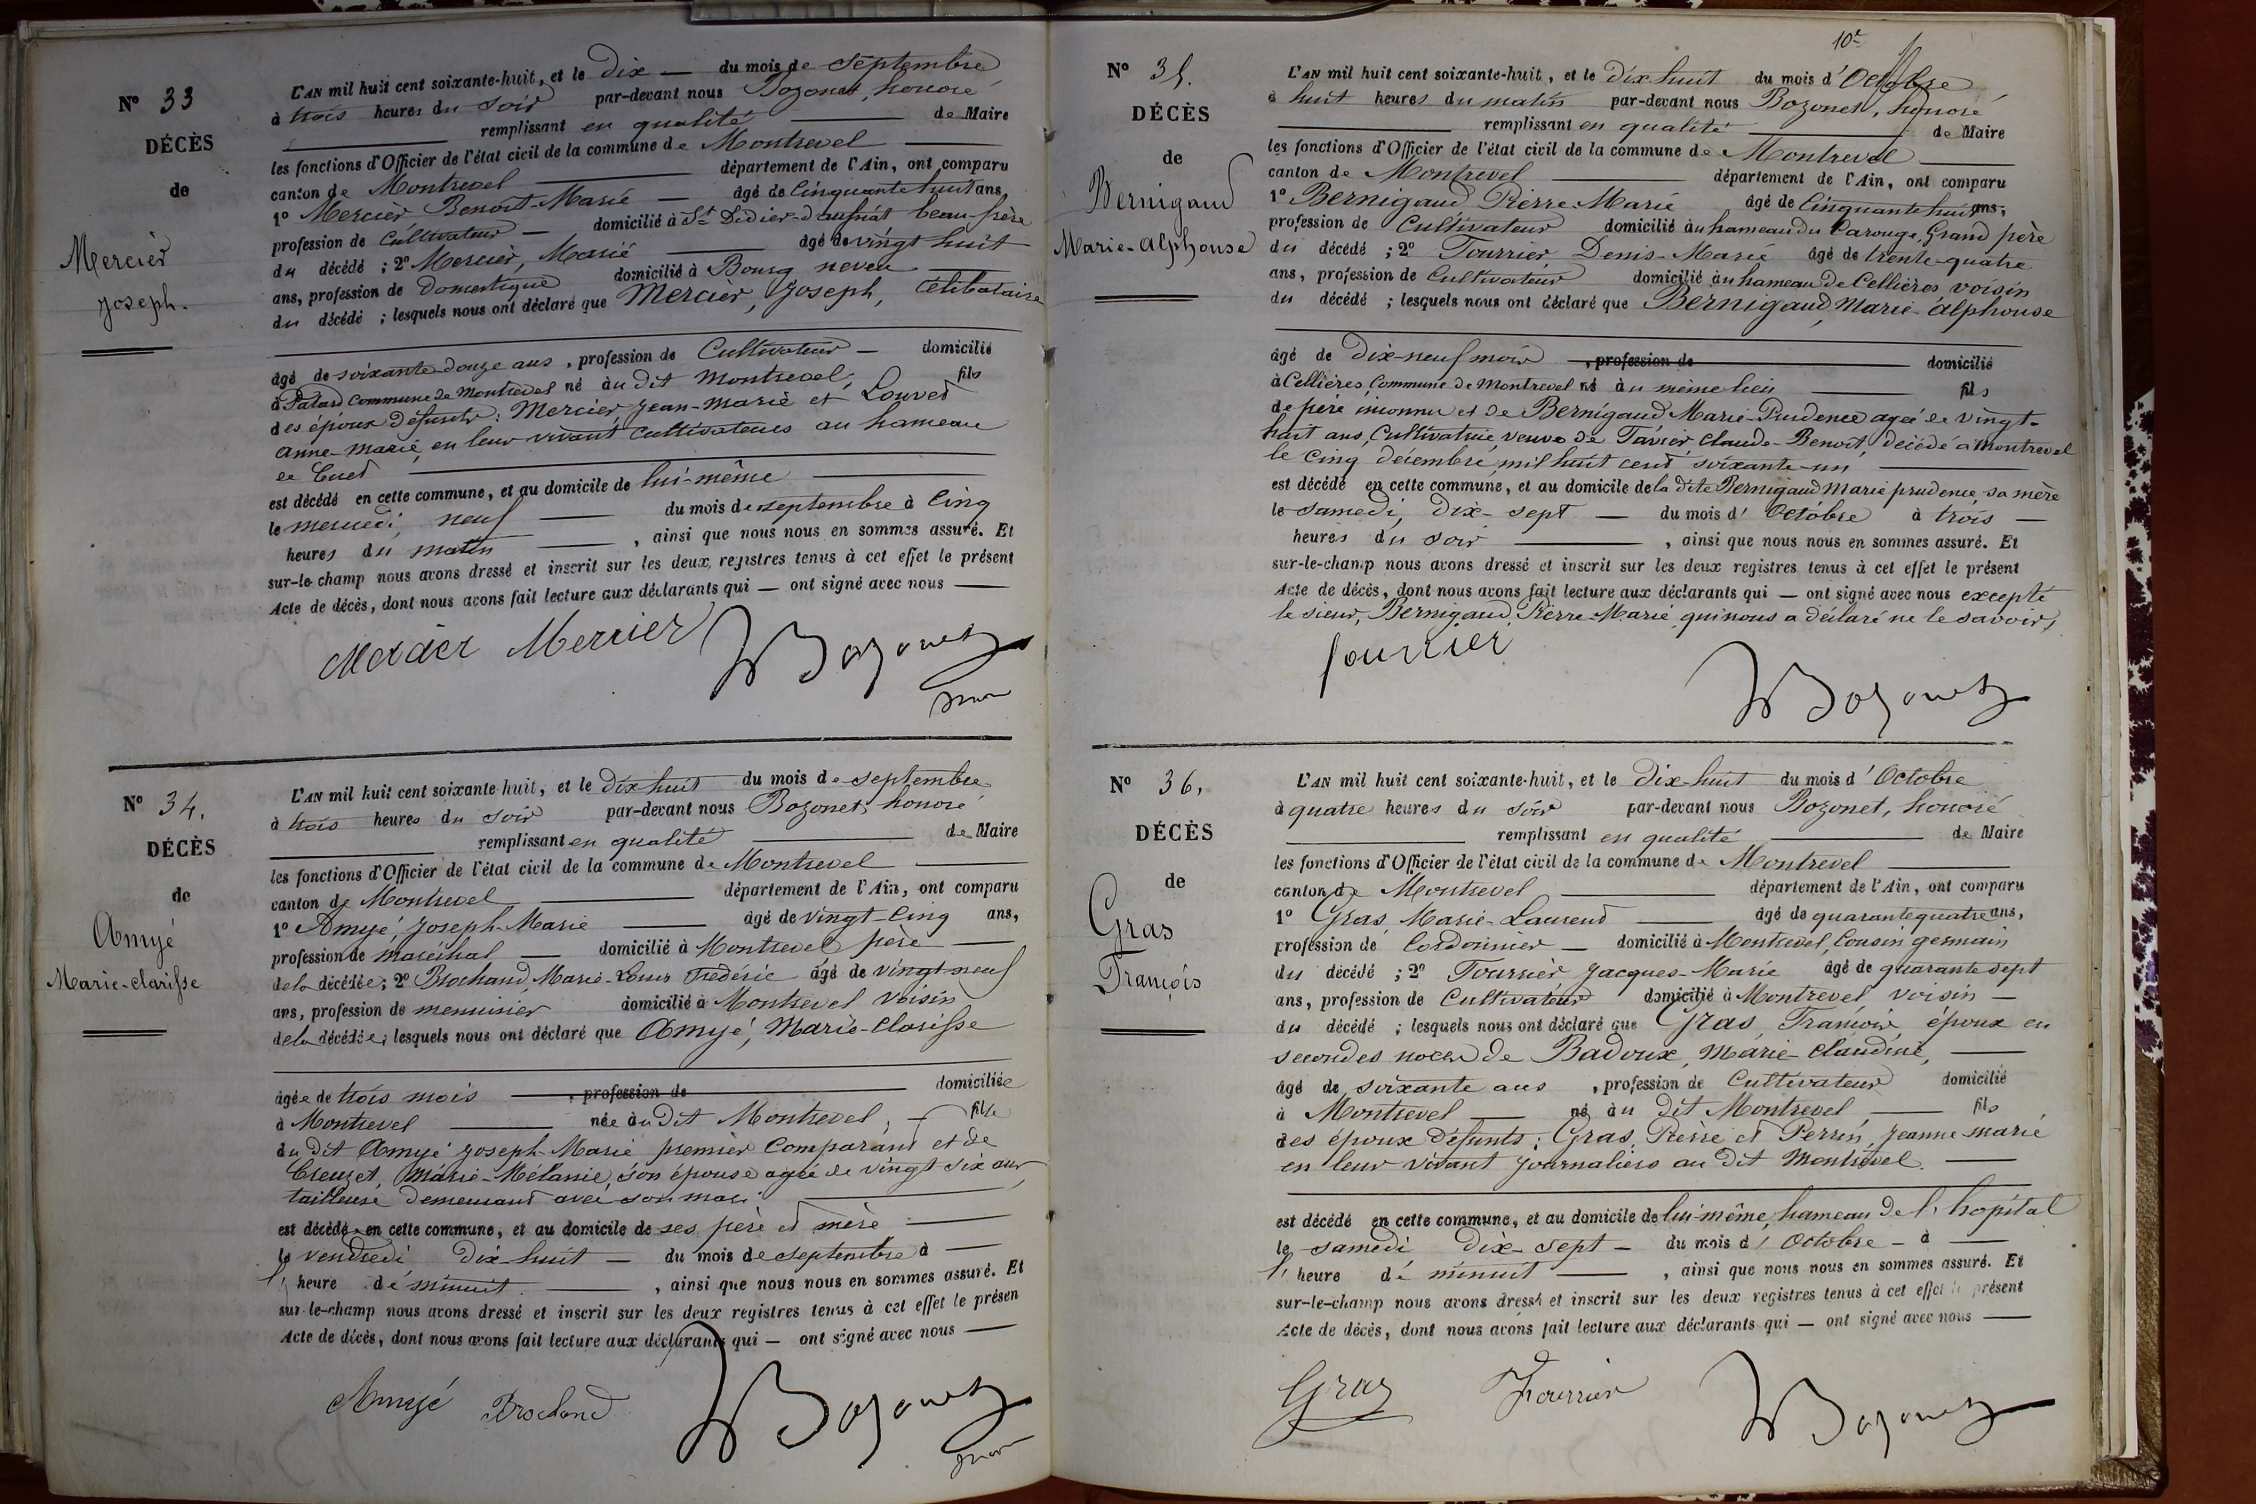 N° 33
DÉCÈS
de
Mercier
Joseph.
L'AN mil huit cent soixante-huit, et le dix — du mois de septembre
à trois heures du soir par-devant nous Bozonet, honoré
remplissant en qualité de Maire
les fonctions d'Officier de l'état civil de la commune de Montrevel
canton de Montrevel département de l'Ain, ont comparu
1° Mercier Benoit-Marie — âgé de cinquante huit ans,
profession de Cultivateur — domicilié à St Didier-d'aussiat beau-frère
du décédé ; 2° Mercier, Marie âgé de vingt huit
ans, profession de domestique domicilié à Bourg neveu
du décédé ; lesquels nous ont déclaré que Mercier, Joseph, Célibataire
âgé de soixante douze ans , profession de Cultivateur — domicilié
à commune de Montrevel né au dit Montrevel, fils
des époux défunts : Mercier, Jean-Marie et Louvet
anne-Marie, en leur vivant cultivateurs au hameau
de Cuet
est décédé en cette commune, et au domicile de lui-même
le mercredi neuf du mois de septembre à cinq
heures du matin , ainsi que nous nous en sommes assuré. Et
sur-le-champ nous avons dressé et inscrit sur les deux registres tenus à cet effet le présent
Acte de décès, dont nous avons fait lecture aux déclarants qui — ont signé avec nous —
Mercier Mercier HBozonet
N° 34.
DÉCÈS
de
Amyé
Marie-clarisse
L'AN mil huit cent soixante-huit, et le dix huit du mois de septembre
à trois heures du soir par-devant nous Bozonet, honoré
remplissant en qualité de Maire
les fonctions d'Officier de l'état civil de la commune de Montrevel
canton de Montrevel département de l'Ain, ont comparu
1° Amyé, Joseph-Marie âgé de vingt-cinq ans,
profession de maréchal — domicilié à Montrevel père
de la décédée ; 2° Brochand, Marie-Louis Frédéric âgé de vingt-neuf
ans, profession de menuisier domicilié à Montrevel voisin
de la décédée ; lesquels nous ont déclaré que Amyé, Marie-Clarisse
âgée de trois mois , profession de domiciliée
à Montrevel née au dit Montrevel, fille
du dit Amyé Joseph-Marie premier comparant et de
Creuzet, Marie-Mélanie, son épouse agée de vingt six ans,
tailleuse demeurant avec son mari
est décédé en cette commune, et au domicile de ses père et mère
le vendredi dix-huit — du mois de septembre à
l' heure de minuit , ainsi que nous nous en sommes assuré. Et
sur-le-champ nous avons dressé et inscrit sur les deux registres tenus à cet effet le présen
Acte de décès, dont nous avons fait lecture aux déclarants qui — ont signé avec nous —
Amyé Brochand HBozonet
10e
N° 35.
DÉCÈS
de
Bernigaud
Marie-Alphonse
L'AN mil huit cent soixante-huit, et le dix huit du mois d'Octobre
à huit heures du matin par-devant nous Bozonet, honoré
remplissant en qualité de Maire
les fonctions d'Officier de l'état civil de la commune de Montrevel
canton de Montrevel département de l'Ain, ont comparu
1° Bernigaud Pierre Marie âgé de Cinquante huit ans,
profession de Cultivateur domicilié au hameau du Carouge, Grand père
du décédé ; 2° Fourrier Denis-Marie âgé de trente-quatre
ans, profession de Cultivateur domicilié au hameau de Cellières voisin
du décédé ; lesquels nous ont déclaré que Bernigaud, Marie-Alphonse
âgé de dix-neuf mois , profession de domicilié
à Cellières, Commune de Montrevel né au même lieu fils
de père inconnu et de Bernigaud Marie-Prudence agée de vingt-
huit ans, Cultivatrice veuve de Tavier, Claude-Benoit, décédé à Montrevel
le cinq décembre mil huit cent soixante-un
est décédé en cette commune, et au domicile de la dite Bernigaud Marie prudence, sa mère
le samedi, dix-sept — du mois d'Octobre à trois —
heures du soir , ainsi que nous nous en sommes assuré. Et
sur-le-champ nous avons dressé et inscrit sur les deux registres tenus à cet effet le présent
Acte de décès, dont nous avons fait lecture aux déclarants qui — ont signé avec nous excepté
le sieur, Bernigaud, Pierre Marie qui nous a déclaré ne le savoir,
fourrier
HBozonet
N° 36,
DÉCÈS
de
Gras
François
L'AN mil huit cent soixante-huit, et le dix huit du mois d'Octobre
à quatre heures du soir par-devant nous Bozonet, honoré
remplissant en qualité de Maire
les fonctions d'Officier de l'état civil de la commune de Montrevel
canton de Montrevel département de l'Ain, ont comparu
1° Gras, Marie-Laurent âgé de quarante quatre ans,
profession de Cordonnier — domicilié à Montrevel, Cousin germain
du décédé ; 2° Fourrier Jacques-Marie âgé de quarante sept
ans, profession de Cultivateur domicilié à Montrevel, voisin —
du décédé ; lesquels nous ont déclaré que Gras, François époux en
secondes noces de Badoux, Marie-Claudine,
âgé de soixante ans , profession de Cultivateur domicilié
à Montrevel né au dit Montrevel fils
des époux défunts : Gras, Pierre et Perrin, Jeanne marie
en leur vivant journaliers au dit Montrevel.
est décédé en cette commune, et au domicile de lui-même, hameau de l'hopital
le samedi dix-sept — du mois d'Octobre — à
l' heure de minuit , ainsi que nous nous en sommes assuré. Et
sur-le-champ nous avons dressé et inscrit sur les deux registres tenus à cet effet le présent
Acte de décès, dont nous avons fait lecture aux déclarants qui — ont signé avec nous
Gras Fourrier HBozonet